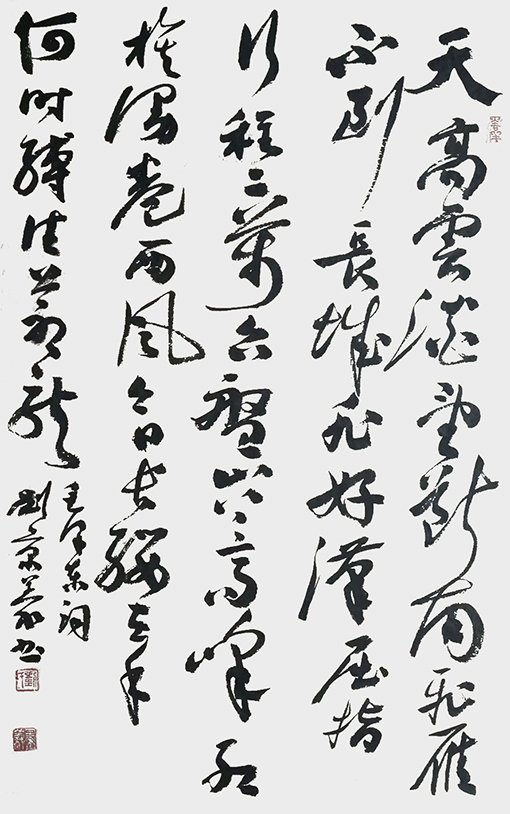 天高雲淡望斷南飛雁
不到長城非好漢屈指
行程二萬六盤山上高峰紅
旗漫卷西風今日長纓在手
何時縛住蒼龍
毛澤東詞
劉京书